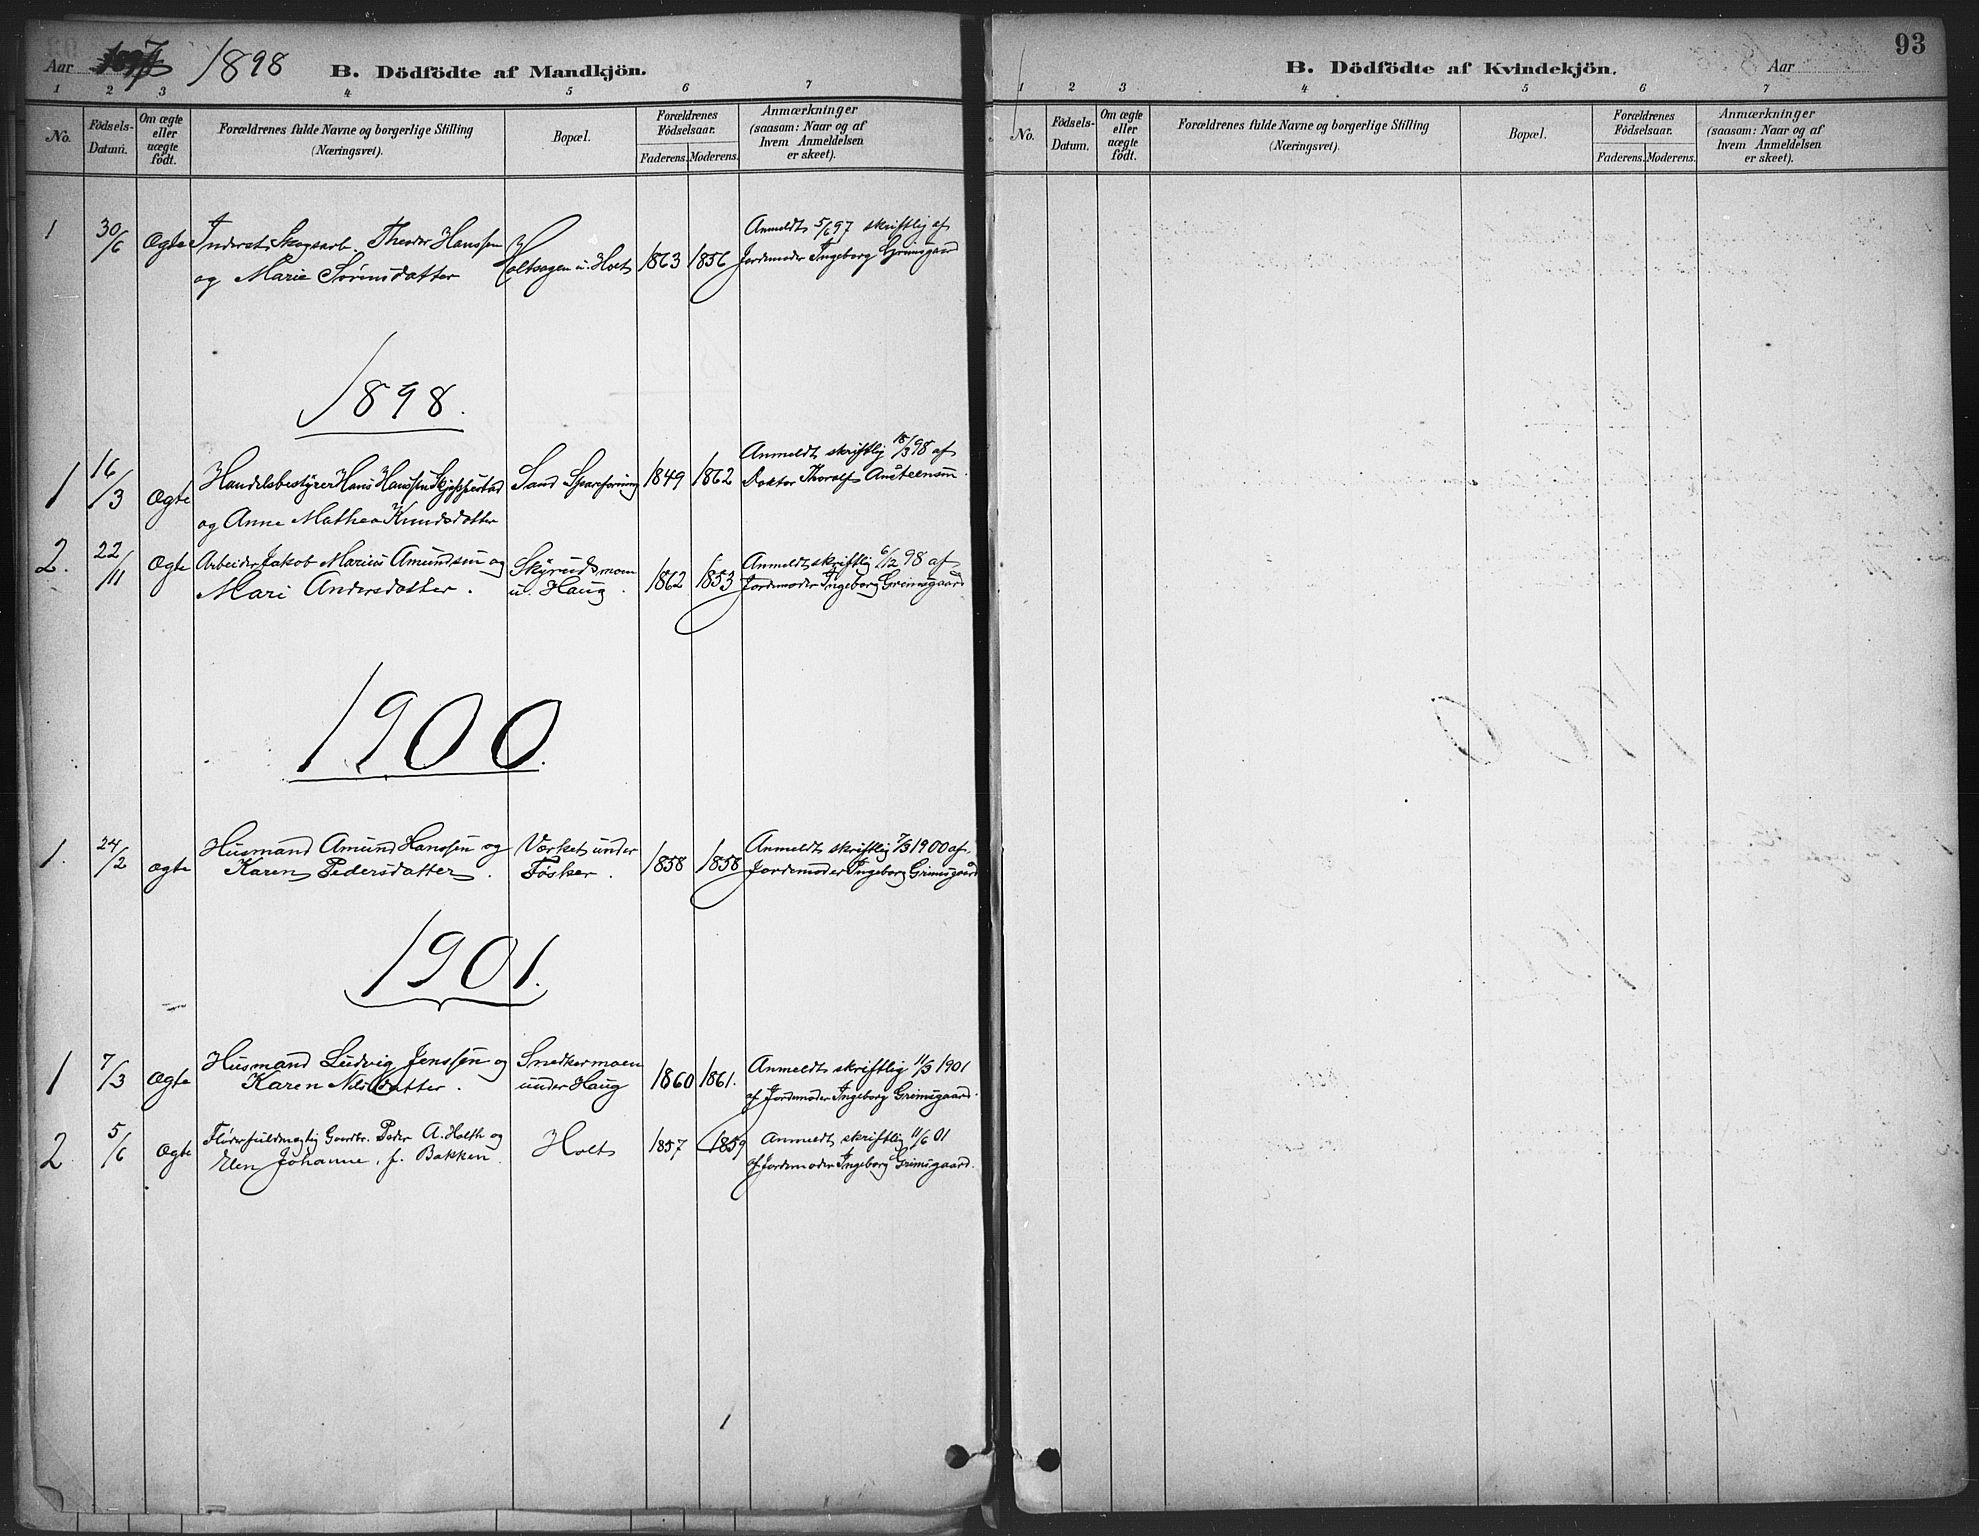 Aar 1898 B. Dödfödte af Mandkjön.
1 2 3 4 5 6 7
No. Födsels-Datum. Om ægte eller uægte födt. Forældrenes fulde Navne og borgerlige Stilling (Næringsvei). Bopæl. Forældrenes Födselsaar. Faderens. Moderens. Anmærkninger (saasom: Naar og af hvem Anmeldelsen er skeet).
1 30/6 Ægte Inderst Skogsarb. Theodor Hanssen Holtsagen u. Holt 1863 1856 Anmeldt 5/6 97 skriftlig af
og Marie Sørensdatter Jordemoder Ingeborg Grimsgaard
1898.
1 16/3 Ægte Handelsbestyrer Hans Hanssen Sand Spareforening 1849 1862 Anmeldt skriftlig 18/3 98 af
og Anne Mathea Knudsdatter Doktor Thoralf Austeensen
2. 22/11 Ægte Arbeider Jakob Marius Amundsen og Skyrudsmoen 1862 1853 Anmeldt skriftlig 6/12 98 af
Mari Andersdatter. u. Haug. Jordemoder Ingeborg Grimsgaard
1900.
1. 24/2 Ægte Husmand Amund Hanssen og Værket under 1858 1858 Anmeldt skriftlig 7/3 1900 af
Karen Pedersdatter. Fösker. Jordemoder Ingeborg Grimsgaard
1901.
1 7/3 Ægte Husmand Ludvig Jenssen og Snedkermoen 1860 1861. Anmeldt skriftlig 11/3 1901
Karen Nilsdatter. under Haug af Jordemoder Ingeborg Grimsgaard.
2 5/6 Ægte Fløderfuldmægtig Gaardbr. Peder A. Holth og Holt 1857 1859 Anmeldt skriftlig 11/6 01
Elen Johanne, f. Bakken. af Jordemoder Ingeborg Grimsgaard.
93
B. Dödfödte af Kvindekjön. Aar
1 2 3 4 5 6 7
No. Födsels-Datum. Om ægte eller uægte födt. Forældrenes fulde Navne og borgerlige Stilling (Næringsvei). Bopæl. Forældrenes Födselsaar. Faderens. Moderens. Anmærkninger (saasom: Naar og af hvem Anmeldelsen er skeet).